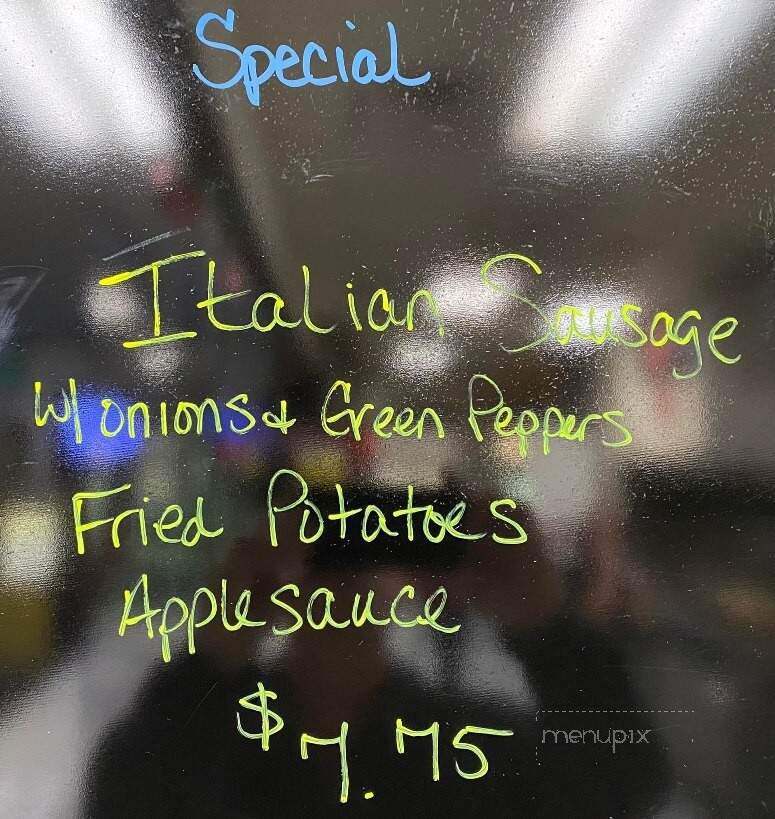 Special
Italian Sausage
W/ onions & Green Peppers
Fried Potatoes
Applesauce
$7.75
menupix